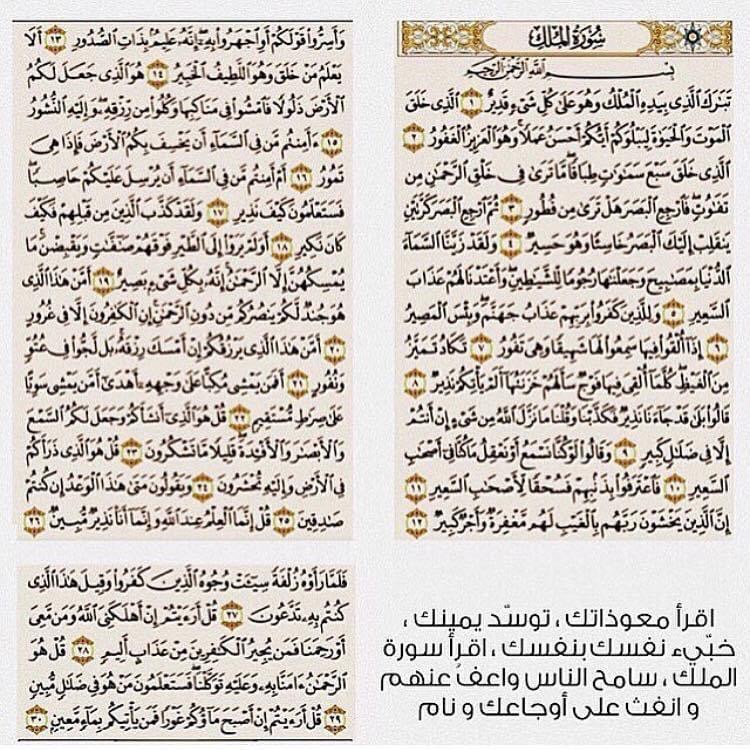 سُورَةُ المُلْكِ
بِسْمِ اللَّهِ الرَّحْمَٰنِ الرَّحِيمِ
تَبَٰرَكَ ٱلَّذِى بِيَدِهِ ٱلْمُلْكُ وَهُوَ عَلَىٰ كُلِّ شَىْءٍ قَدِيرٌ ١ ٱلَّذِى خَلَقَ
ٱلْمَوْتَ وَٱلْحَيَوٰةَ لِيَبْلُوَكُمْ أَيُّكُمْ أَحْسَنُ عَمَلًا وَهُوَ ٱلْعَزِيزُ ٱلْغَفُورُ ٢
ٱلَّذِى خَلَقَ سَبْعَ سَمَٰوَٰتٍ طِبَاقًا مَّا تَرَىٰ فِى خَلْقِ ٱلرَّحْمَٰنِ مِن
تَفَٰوُتٍ فَٱرْجِعِ ٱلْبَصَرَ هَلْ تَرَىٰ مِن فُطُورٍ ٣ ثُمَّ ٱرْجِعِ ٱلْبَصَرَ كَرَّتَيْنِ
يَنقَلِبْ إِلَيْكَ ٱلْبَصَرُ خَاسِئًا وَهُوَ حَسِيرٌ ٤ وَلَقَدْ زَيَّنَّا ٱلسَّمَآءَ
ٱلدُّنْيَا بِمَصَٰبِيحَ وَجَعَلْنَٰهَا رُجُومًا لِّلشَّيَٰطِينِ وَأَعْتَدْنَا لَهُمْ عَذَابَ
ٱلسَّعِيرِ ٥ وَلِلَّذِينَ كَفَرُوا۟ بِرَبِّهِمْ عَذَابُ جَهَنَّمَ وَبِئْسَ ٱلْمَصِيرُ
٦ إِذَآ أُلْقُوا۟ فِيهَا سَمِعُوا۟ لَهَا شَهِيقًا وَهِىَ تَفُورُ ٧ تَكَادُ تَمَيَّزُ
مِنَ ٱلْغَيْظِ كُلَّمَآ أُلْقِىَ فِيهَا فَوْجٌ سَأَلَهُمْ خَزَنَتُهَآ أَلَمْ يَأْتِكُمْ نَذِيرٌ ٨
قَالُوا۟ بَلَىٰ قَدْ جَآءَنَا نَذِيرٌ فَكَذَّبْنَا وَقُلْنَا مَا نَزَّلَ ٱللَّهُ مِن شَىْءٍ إِنْ أَنتُمْ
إِلَّا فِى ضَلَٰلٍ كَبِيرٍ ٩ وَقَالُوا۟ لَوْ كُنَّا نَسْمَعُ أَوْ نَعْقِلُ مَا كُنَّا فِىٓ أَصْحَٰبِ
ٱلسَّعِيرِ ١٠ فَٱعْتَرَفُوا۟ بِذَنۢبِهِمْ فَسُحْقًا لِّأَصْحَٰبِ ٱلسَّعِيرِ ١١
إِنَّ ٱلَّذِينَ يَخْشَوْنَ رَبَّهُم بِٱلْغَيْبِ لَهُم مَّغْفِرَةٌ وَأَجْرٌ كَبِيرٌ ١٢
وَأَسِرُّوا۟ قَوْلَكُمْ أَوِ ٱجْهَرُوا۟ بِهِۦٓ إِنَّهُۥ عَلِيمٌۢ بِذَاتِ ٱلصُّدُورِ ١٣ أَلَا
يَعْلَمُ مَنْ خَلَقَ وَهُوَ ٱللَّطِيفُ ٱلْخَبِيرُ ١٤ هُوَ ٱلَّذِى جَعَلَ لَكُمُ
ٱلْأَرْضَ ذَلُولًا فَٱمْشُوا۟ فِى مَنَاكِبِهَا وَكُلُوا۟ مِن رِّزْقِهِۦ وَإِلَيْهِ ٱلنُّشُورُ
١٥ ءَأَمِنتُم مَّن فِى ٱلسَّمَآءِ أَن يَخْسِفَ بِكُمُ ٱلْأَرْضَ فَإِذَا هِىَ
تَمُورُ ١٦ أَمْ أَمِنتُم مَّن فِى ٱلسَّمَآءِ أَن يُرْسِلَ عَلَيْكُمْ حَاصِبًا
فَسَتَعْلَمُونَ كَيْفَ نَذِيرِ ١٧ وَلَقَدْ كَذَّبَ ٱلَّذِينَ مِن قَبْلِهِمْ فَكَيْفَ
كَانَ نَكِيرِ ١٨ أَوَلَمْ يَرَوْا۟ إِلَى ٱلطَّيْرِ فَوْقَهُمْ صَٰٓفَّٰتٍ وَيَقْبِضْنَ مَا
يُمْسِكُهُنَّ إِلَّا ٱلرَّحْمَٰنُ إِنَّهُۥ بِكُلِّ شَىْءٍۭ بَصِيرٌ ١٩ أَمَّنْ هَٰذَا ٱلَّذِى
هُوَ جُندٌ لَّكُمْ يَنصُرُكُم مِّن دُونِ ٱلرَّحْمَٰنِ إِنِ ٱلْكَٰفِرُونَ إِلَّا فِى غُرُورٍ
٢٠ أَمَّنْ هَٰذَا ٱلَّذِى يَرْزُقُكُمْ إِنْ أَمْسَكَ رِزْقَهُۥ بَل لَّجُّوا۟ فِى عُتُوٍّ
وَنُفُورٍ ٢١ أَفَمَن يَمْشِى مُكِبًّا عَلَىٰ وَجْهِهِۦٓ أَهْدَىٰٓ أَمَّن يَمْشِى سَوِيًّا
عَلَىٰ صِرَٰطٍ مُّسْتَقِيمٍ ٢٢ قُلْ هُوَ ٱلَّذِىٓ أَنشَأَكُمْ وَجَعَلَ لَكُمُ ٱلسَّمْعَ
وَٱلْأَبْصَٰرَ وَٱلْأَفْـِٔدَةَ قَلِيلًا مَّا تَشْكُرُونَ ٢٣ قُلْ هُوَ ٱلَّذِى ذَرَأَكُمْ
فِى ٱلْأَرْضِ وَإِلَيْهِ تُحْشَرُونَ ٢٤ وَيَقُولُونَ مَتَىٰ هَٰذَا ٱلْوَعْدُ إِن كُنتُمْ
صَٰدِقِينَ ٢٥ قُلْ إِنَّمَا ٱلْعِلْمُ عِندَ ٱللَّهِ وَإِنَّمَآ أَنَا۠ نَذِيرٌ مُّبِينٌ ٢٦
فَلَمَّا رَأَوْهُ زُلْفَةً سِيٓـَٔتْ وُجُوهُ ٱلَّذِينَ كَفَرُوا۟ وَقِيلَ هَٰذَا ٱلَّذِى
كُنتُم بِهِۦ تَدَّعُونَ ٢٧ قُلْ أَرَءَيْتُمْ إِنْ أَهْلَكَنِىَ ٱللَّهُ وَمَن مَّعِىَ
أَوْ رَحِمَنَا فَمَن يُجِيرُ ٱلْكَٰفِرِينَ مِنْ عَذَابٍ أَلِيمٍ ٢٨ قُلْ هُوَ
ٱلرَّحْمَٰنُ ءَامَنَّا بِهِۦ وَعَلَيْهِ تَوَكَّلْنَا فَسَتَعْلَمُونَ مَنْ هُوَ فِى ضَلَٰلٍ مُّبِينٍ
٢٩ قُلْ أَرَءَيْتُمْ إِنْ أَصْبَحَ مَآؤُكُمْ غَوْرًا فَمَن يَأْتِيكُم بِمَآءٍ مَّعِينٍۭ ٣٠
اقرأ معوذاتك ، توسّد يمينك ،
خبّيء نفسك بنفسك ، اقرأ سورة
الملك ، سامح الناس واعفُ عنهم
و انفث على أوجاعك و نام